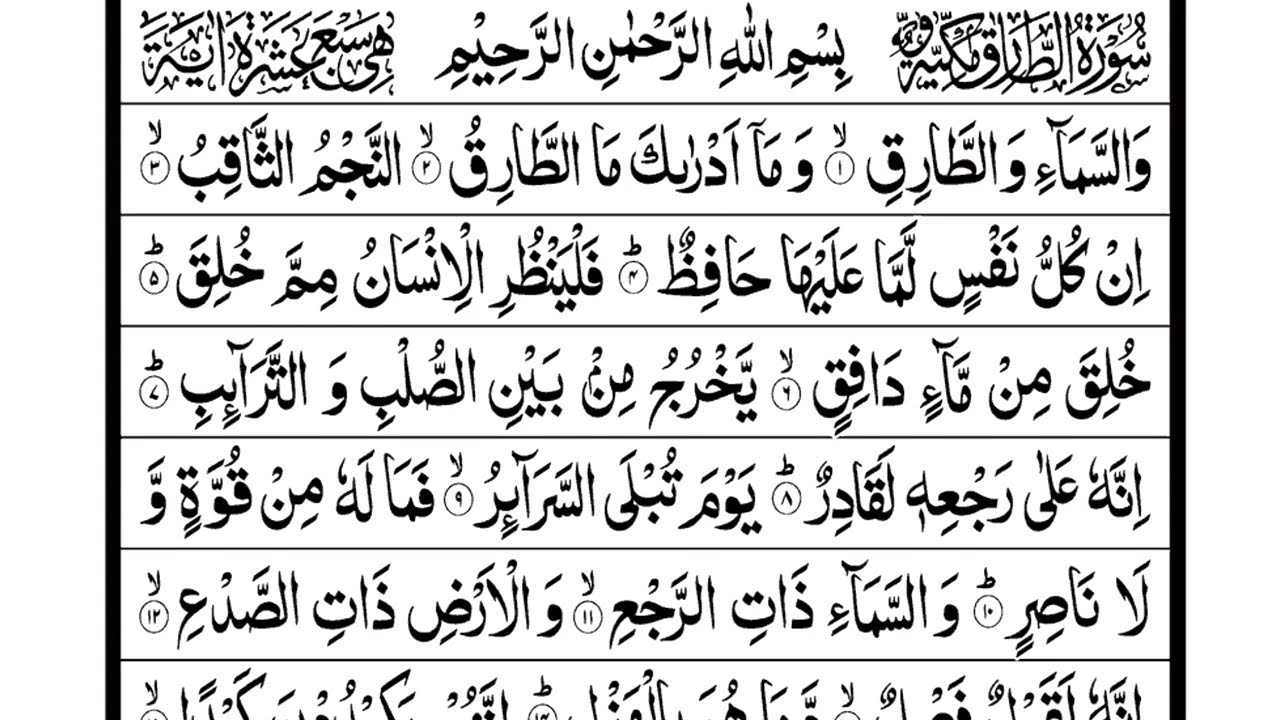 سُوْرَةُ الطَّارِقِ مَكِّيَّةٌ وَّ بِسْمِ اللهِ الرَّحْمٰنِ الرَّحِيْمِ هِیَ سَبْعَ عَشَرَةَ اٰيَةً
وَالسَّمَآءِ وَالطَّارِقِ ۙ﴿۱﴾ وَ مَآ اَدْرٰىكَ مَا الطَّارِقُ ۙ﴿۲﴾ النَّجْمُ الثَّاقِبُ ۙ﴿۳﴾
اِنْ كُلُّ نَفْسٍ لَّمَّا عَلَيْهَا حَافِظٌ ؕ﴿۴﴾ فَلْيَنْظُرِ الْاِنْسَانُ مِمَّ خُلِقَ ؕ﴿۵﴾
خُلِقَ مِنْ مَّآءٍ دَافِقٍ ۙ﴿۶﴾ يَّخْرُجُ مِنْۢ بَيْنِ الصُّلْبِ وَ التَّرَآئِبِ ؕ﴿۷﴾
اِنَّهٗ عَلٰى رَجْعِهٖ لَقَادِرٌ ؕ﴿۸﴾ يَوْمَ تُبْلَى السَّرَآئِرُ ۙ﴿۹﴾ فَمَا لَهٗ مِنْ قُوَّةٍ وَّ
لَا نَاصِرٍ ؕ﴿۱۰﴾ وَ السَّمَآءِ ذَاتِ الرَّجْعِ ۙ﴿۱۱﴾ وَ الْاَرْضِ ذَاتِ الصَّدْعِ ۙ﴿۱۲﴾
اِنَّهٗ لَقَوْلٌ فَصْلٌ ۙ وَّ مَا هُوَ بِالْهَزْلِ ؕ﴿۱۴﴾ اِنَّهُمْ يَكِيْدُوْنَ كَيْدًا ۙ